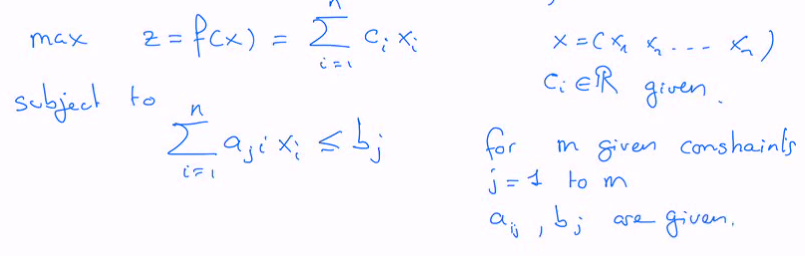 max z = f(x) = Σ_{i=1}^{n} c_i x_i
x = (x_1 x_2 ... x_n)
c_i ∈ ℝ given.
subject to
Σ_{i=1}^{n} a_{ji} x_i ≤ b_j
for m given constraints
j = 1 to m
a_{ij}, b_j are given.